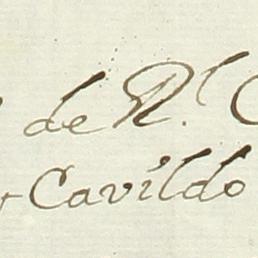 de R.l
Cavildo